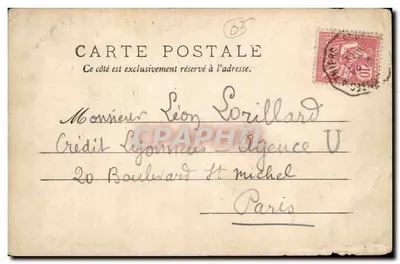 03
CARTE POSTALE
Ce côté est exclusivement réservé à l'adresse.
10
Monsieur Léon Lorillard
Crédit Lyonnais - Agence U
20 Boulevard St michel
Paris